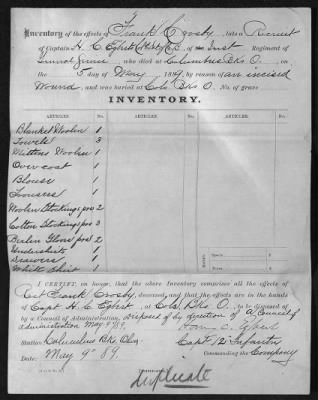 Inventory of the effects of Frank Crosby, late a Recruit
of Captain H. C. Egbert of Inst Regiment of
General Service, who died at Columbus Bks O. on
the 5 day of May, 1889, by reason of an incised
Wound, and was buried at Col. Bks O. No. of grave
INVENTORY.
ARTICLES. No. ARTICLES. No. ARTICLES. No.
Blanket Woolen 1
Towels 3
Mittens Woolen 1
Overcoat 1
Blouse 1
Trousers 1
Woolen Stockings prs 2
Cotton Stockings prs 3
Berlin Gloves prs 2
Undershirts
Drawers 1
White Shirt 1
I CERTIFY, on honor, that the above Inventory comprises all the effects of
Rect Frank Crosby, deceased, and that the effects are in the hands
of Capt H. C. Egbert, at Col. Bks O., to be disposed of
by a Council of Administration, disposed of by direction of a Council of
administration May 9" 89.
Harry C. Egbert
Station: Columbus Bks Ohio
Capt 12" Infantry
Date: May 9" 89
Commanding the Company
Duplicate